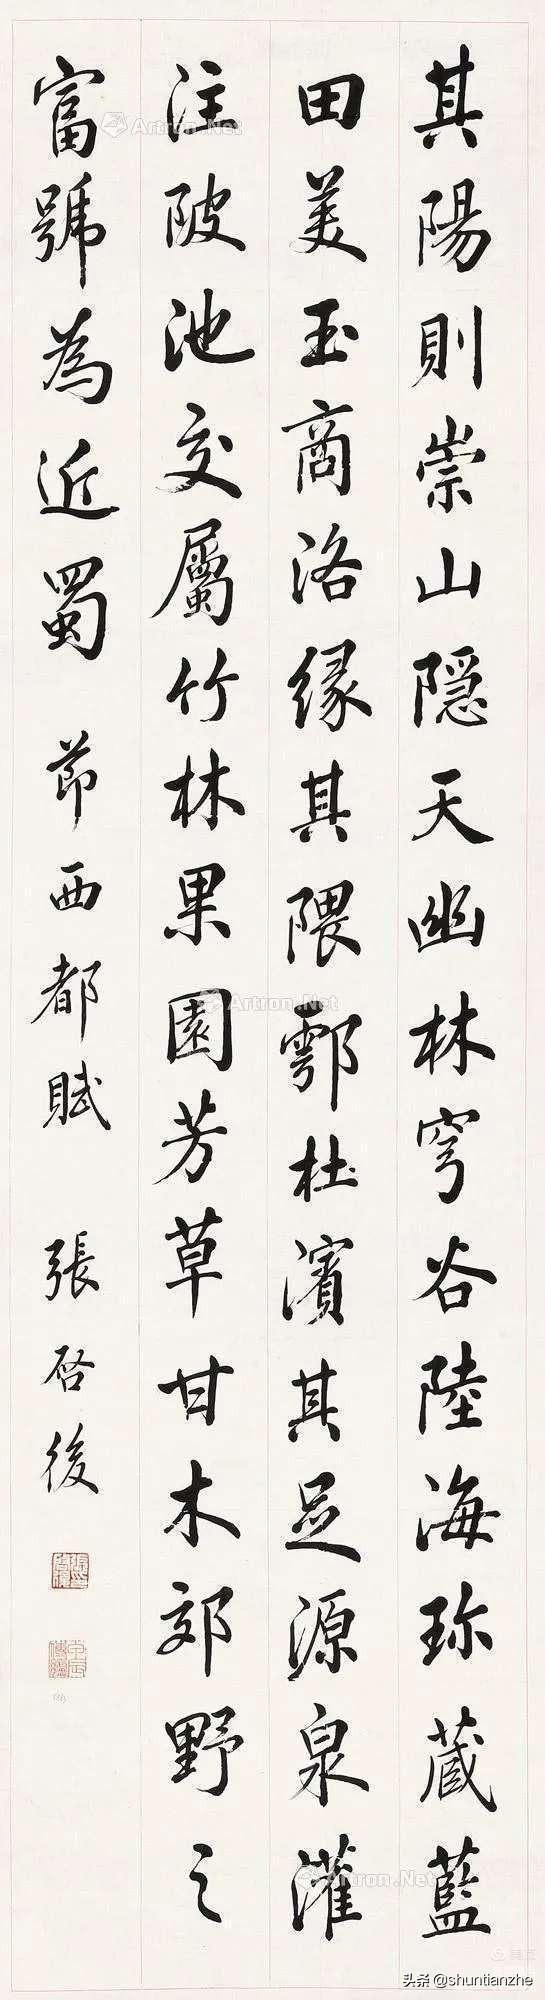 其陽則崇山隱天幽林穹谷陸海珎蔵藍
田美玉商洛缘其隈鄠杜濱其足源泉灌
注陂池交屬竹林果園芳草甘木郊野之
富號為近蜀 節西都賦 張启後
Artron.Net
Artron.Net
Artron.Net
Artron.Net
头条@shuntianzhe